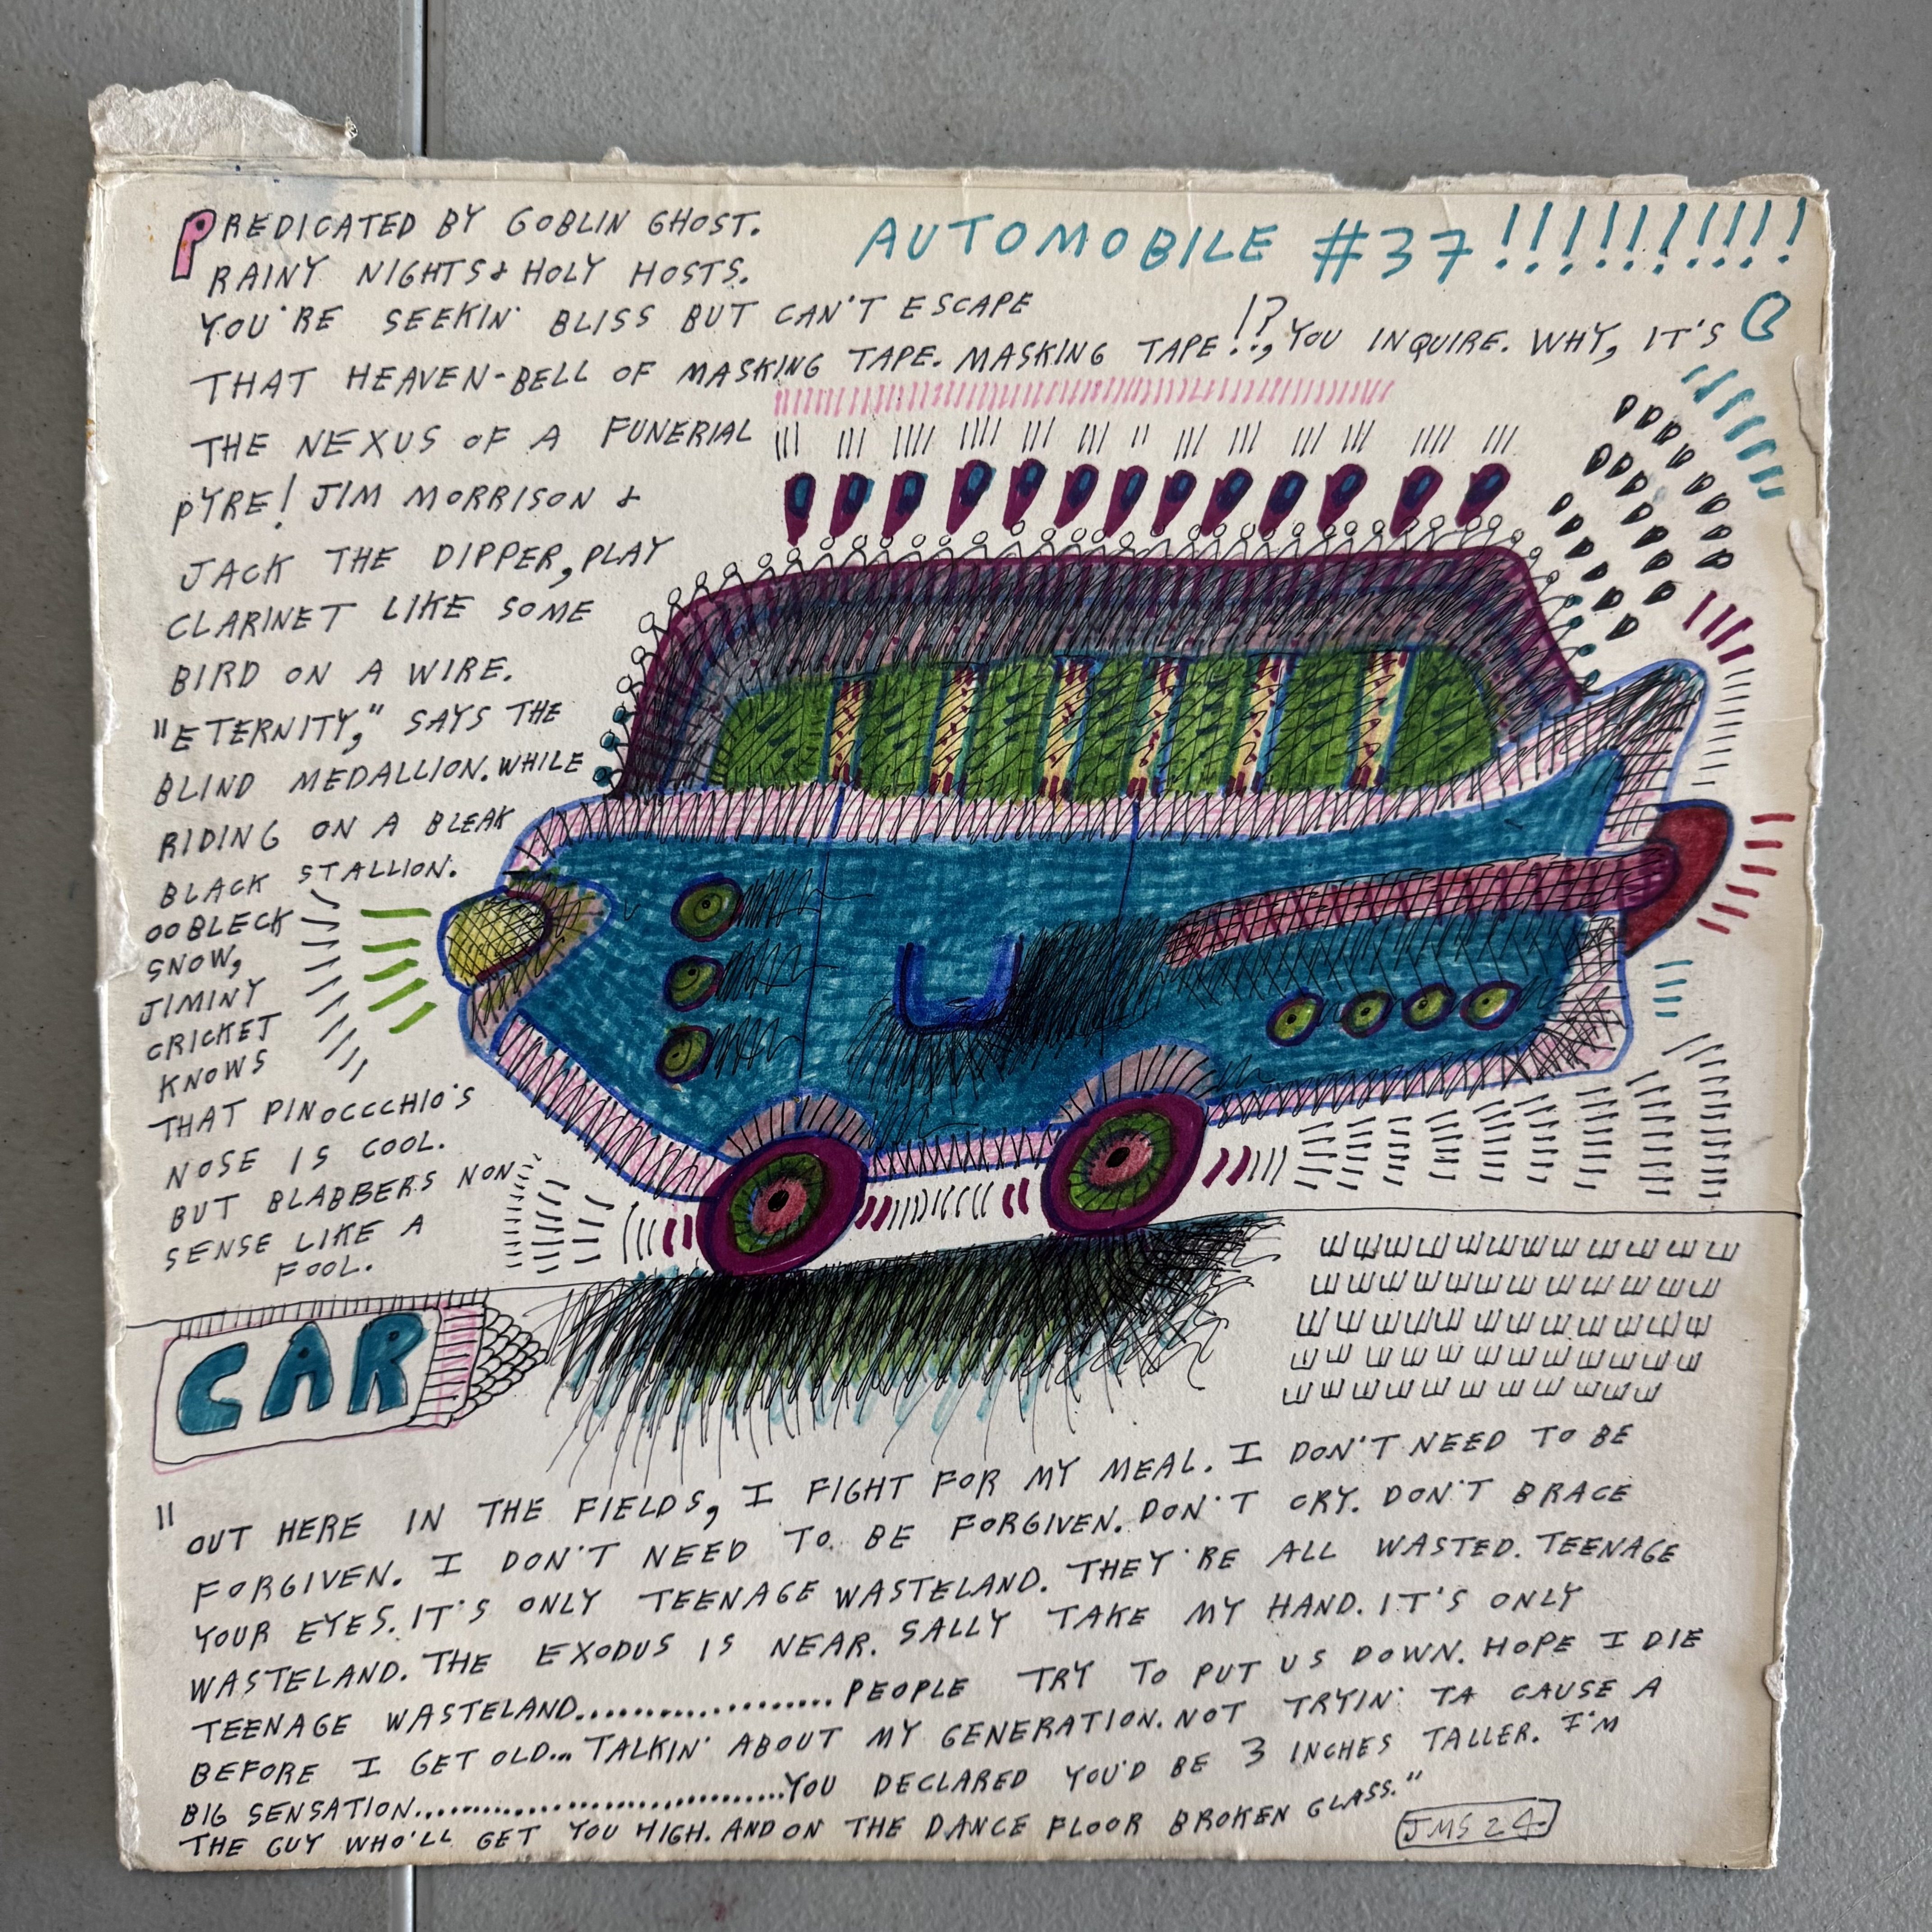 AUTOMOBILE #37!!!!!!!!!!
PREDICATED BY GOBLIN GHOST.
RAINY NIGHTS & HOLY HOSTS.
YOU'RE SEEKIN' BLISS BUT CAN'T ESCAPE
THAT HEAVEN-BELL OF MASKING TAPE. MASKING TAPE!?, YOU INQUIRE. WHY, IT'S
THE NEXUS OF A FUNERIAL
PYRE! JIM MORRISON &
JACK THE DIPPER, PLAY
CLARINET LIKE SOME
BIRD ON A WIRE.
"ETERNITY," SAYS THE
BLIND MEDALLION. WHILE
RIDING ON A BLEAK
BLACK STALLION.
OOBLECK
SNOW,
JIMINY
CRICKET
KNOWS
THAT PINOCCCHIO'S
NOSE IS COOL.
BUT BLABBERS NON
SENSE LIKE A
FOOL.
CAR
"OUT HERE IN THE FIELDS, I FIGHT FOR MY MEAL. I DON'T NEED TO BE
FORGIVEN. I DON'T NEED TO BE FORGIVEN. DON'T CRY. DON'T BRACE
YOUR EYES. IT'S ONLY TEENAGE WASTELAND. THEY'RE ALL WASTED. TEENAGE
WASTELAND. THE EXODUS IS NEAR. SALLY TAKE MY HAND. IT'S ONLY
TEENAGE WASTELAND....................PEOPLE TRY TO PUT US DOWN. HOPE I DIE
BEFORE I GET OLD... TALKIN' ABOUT MY GENERATION. NOT TRYIN' TA CAUSE A
BIG SENSATION..................................YOU DECLARED YOU'D BE 3 INCHES TALLER. I'M
THE GUY WHO'LL GET YOU HIGH. AND ON THE DANCE FLOOR BROKEN GLASS."
JMS 24.